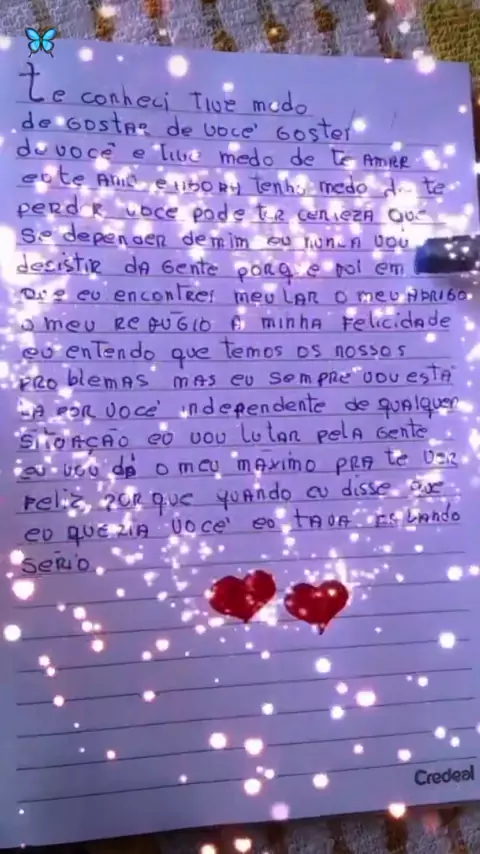 te conheci Tive medo
de GOSTAR de você GOSTEI
de você e tive medo de te AMAR
eu te AMEI e agora tenho medo de te
perder você pode ter certeza que
se depender de mim eu nunca vou
desistir da gente porque foi em
que eu encontrei meu LAR o meu ABRIGO
o meu REFÚGIO a minha Felicidade
eu entendo que temos os nossos
PROblemas mas eu sempre vou está
LA POR você independente de qualquer
situação eu vou lutar pela gente
eu vou dá o meu máximo pra te ver
feliz, porque quando eu disse que
eu queria você eu tava falando
serio
Credeal